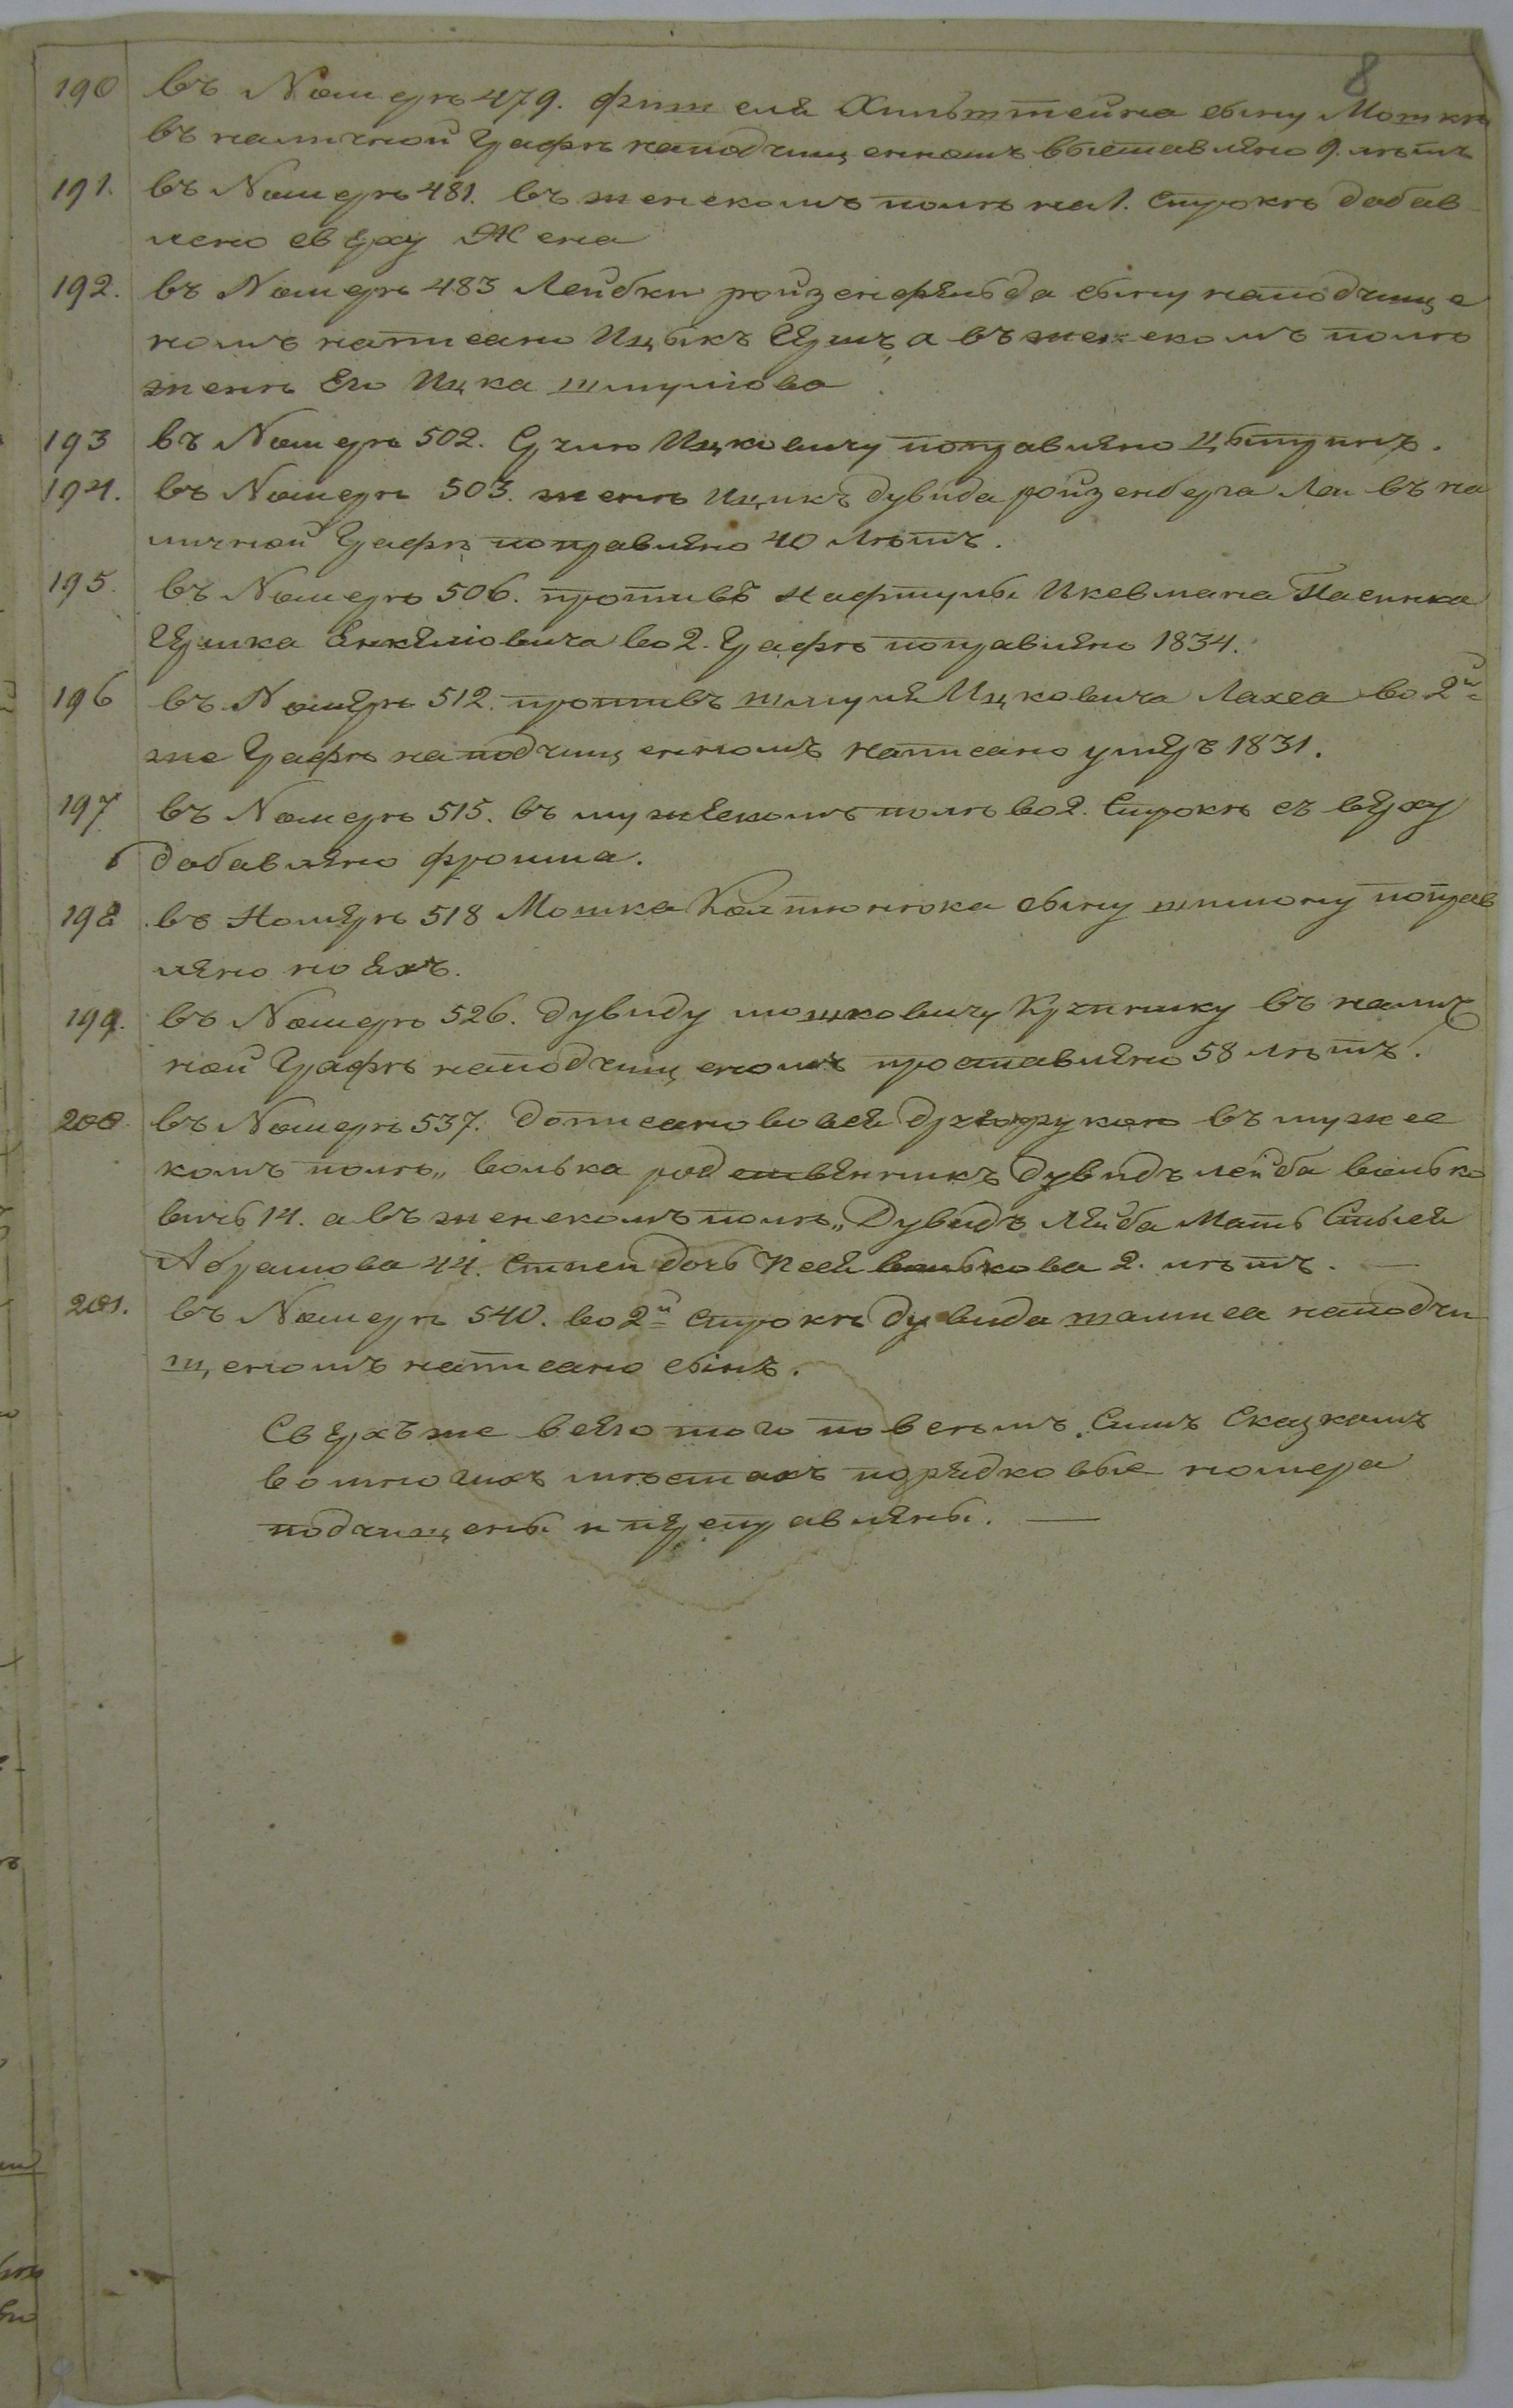 8
190 въ Номерѣ 479. Фишеля Хильштейна сыну Мошкѣ
въ наличной Графѣ наподчищенномъ выставлено 9. лѣтъ
191. въ Номерѣ 481. въ женскомъ полѣ на 1. Строкѣ добав
лено сверху Жена
192. въ Номерѣ 483 Лейбки ройзенфельда сыну наподчище
номъ написано Ицыкъ Гершъ, а въ женскомъ полѣ
женѣ Его Ицка шмулiова
193 въ Номерѣ 502. Ицковичу поправлено
194. въ Номерѣ 503. женѣ Ицикъ Дувида ройзенберга Леи въ на
личной Графѣ поправлено 40 лѣтъ.
195. въ Номерѣ 506. противъ Нафтулы Пасынка
Гершка Енкелiовича во 2. Графѣ поправлено 1834.
196 въ Номерѣ 512. противъ шмуля Ицковича Лахса во 2й
же Графѣ на подчищенномъ написано умеръ 1831.
197 въ Номерѣ 515. въ мужескомъ полѣ во 2. Строкѣ съ верху
добавлено фроима.
198 въ Номерѣ 518 Мошка сыну шлiому поправ
лено ноехъ.
199. въ Номерѣ 526. Дувиду мошковичу Кучинику въ налич
ной Графѣ наподчищеномъ проставлено 58 лѣтъ.
200. въ Номерѣ 537. дописано вовсе другою рукою въ мужес
комъ полѣ „ волька родственникъ Дувидъ лейба волько
вичь 14. а въ женскомъ полѣ „ Дувидъ Лейба Мать
Абрамова 44. дочь Песя волькова 2. лѣтъ. —
201. въ Номерѣ 540. во 2й Строкѣ дувида наподчи
щеномъ написано сынъ.
Сверхъ же всего того по всемъ Симъ Сказкамъ
во многихъ мѣстахъ порядковые номера
подчищены и переправлены. —